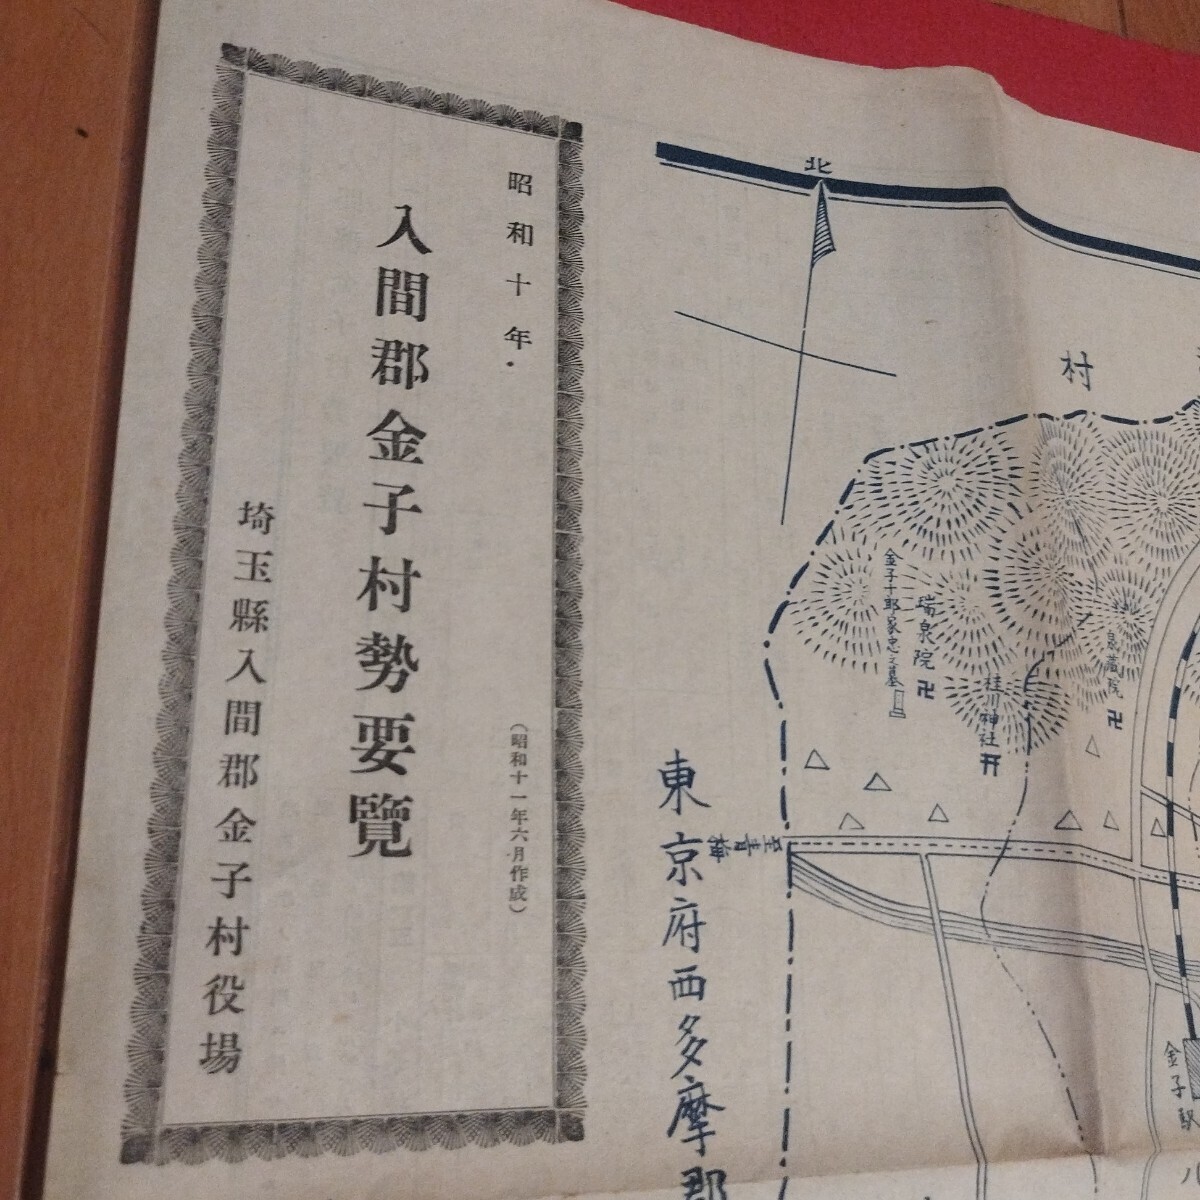 昭和十年・
入間郡金子村勢要覽
（昭和十一年六月作成）
埼玉縣入間郡金子村役場
北
村
金子十郎家忠之墓
瑞泉院
卍
桂川神社
泉蔵院
卍
至青梅
東京府西多摩郡
金子駅
八